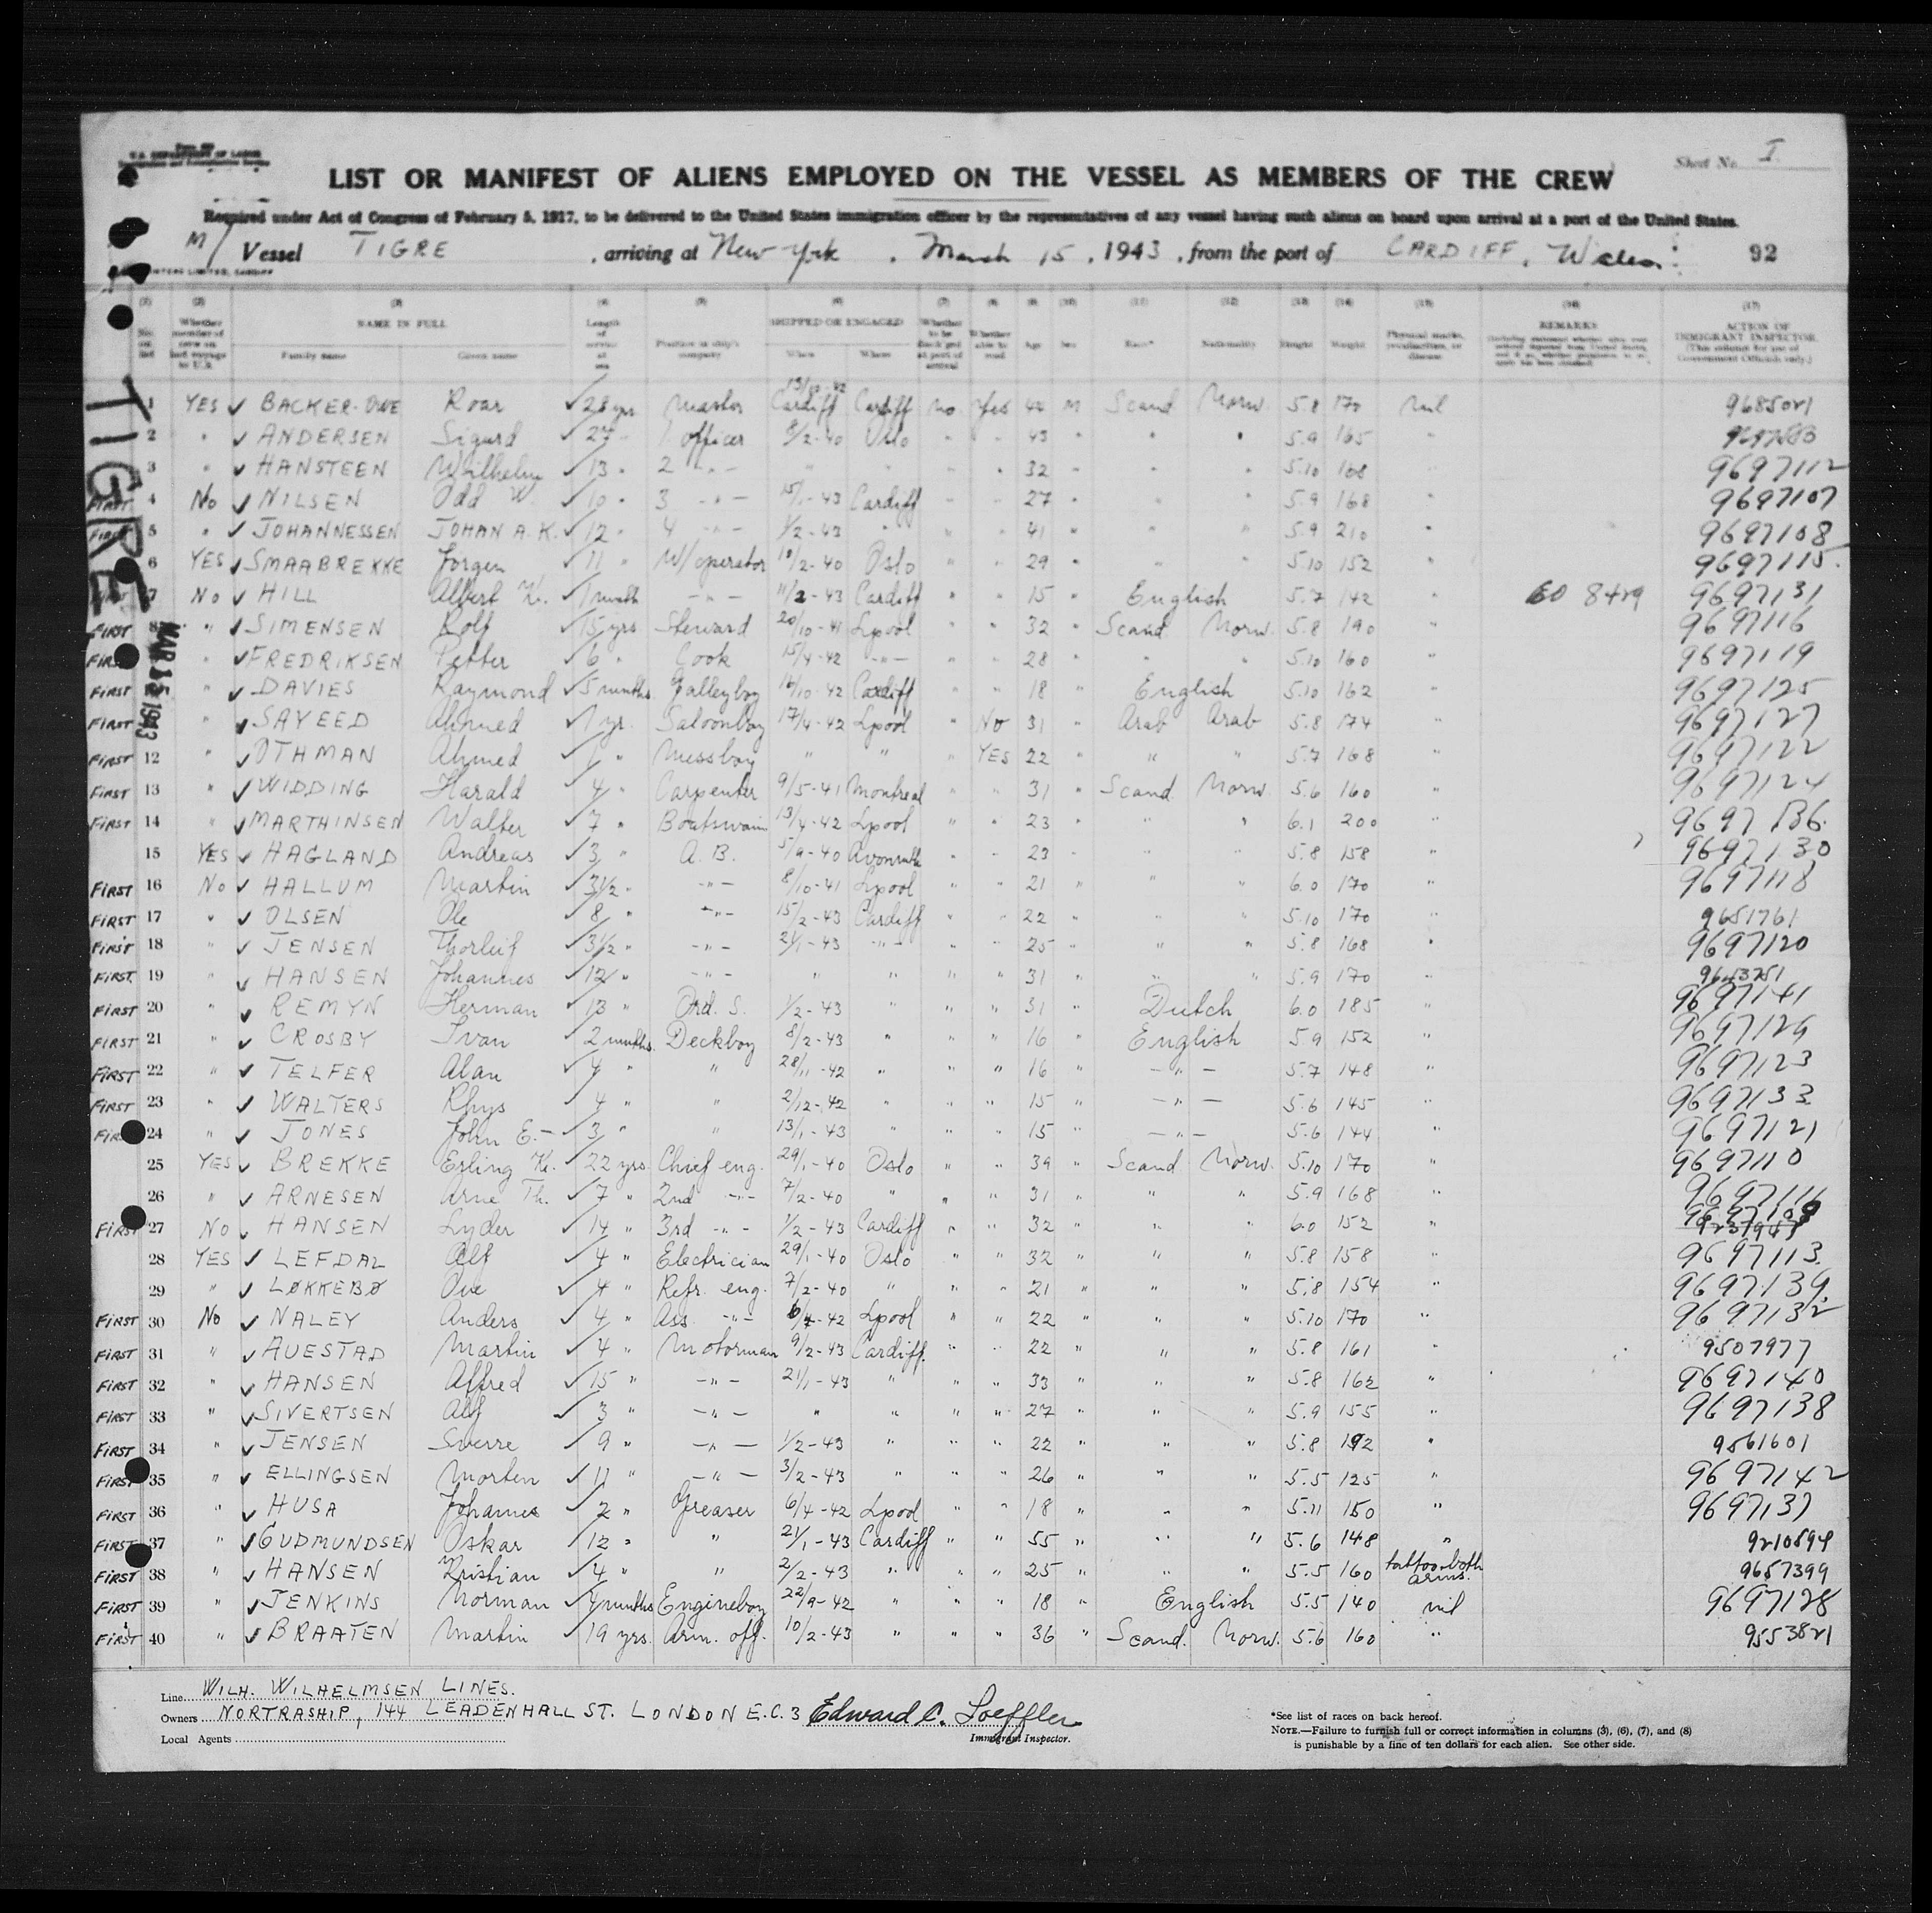 Sheet No. I
LIST OR MANIFEST OF ALIENS EMPLOYED ON THE VESSEL AS MEMBERS OF THE CREW
Required under Act of Congress of February 5, 1917, to be delivered to the United States immigration officer by the representatives of any vessel having such aliens on board upon arrival at a port of the United States.
M/ Vessel TIGRE , arriving at New York , March 15 , 1943 , from the port of CARDIFF, Wales. 92
NAME IN FULL SHIPPED OR ENGAGED REMARKS ACTION OF IMMIGRANT INSPECTOR
Family name Given name Position in ship's company When Where Age Sex Race* Nationality Height Weight
TIGRE
MAR 15 1943
1 YES BACKER-OWE Roar 28 yrs Master 13/10-42 Cardiff Cardiff no Yes 44 M Scand Norw. 5.8 170 nil 9685021
2 " ANDERSEN Sigurd 27 " 1. officer 8/2-40 Oslo " " 43 " " " 5.9 165 "
3 " HANSTEEN Wilhelm 13 " 2 -"- " " " " 32 " " " 5.10 168 " 9697112
FIRST 4 No NILSEN Odd W. 10 " 3 -"- 15/1-43 Cardiff " " 27 " " " 5.9 168 " 9697107
FIRST 5 " JOHANNESSEN JOHAN A.K. 12 " 4 -"- 1/2-43 " " " 41 " " " 5.9 210 " 9697108
6 YES SMAABREKKE Jorgen 11 " W/operator 10/2-40 Oslo " " 29 " " " 5.10 152 " 9697115
7 No HILL Albert K. 1 month -"- 11/2-43 Cardiff " " 15 " English 5.7 142 " 9697131
FIRST 8 " SIMENSEN Rolf 15 yrs Steward 20/10-41 Lpool " " 32 " Scand Norw. 5.8 190 " 9697116
FIRST " FREDRIKSEN Petter 6 " Cook 15/4-42 -"- " " 28 " " " 5.10 160 " 9697119
FIRST " DAVIES Raymond 5 months Galleyboy 16/10-42 Cardiff " " 18 " English 5.10 162 " 9697125
FIRST " SAYEED Ahmed 1 yr. Saloonboy 17/4-42 Lpool " No 31 " Arab Arab 5.8 174 " 9697127
FIRST 12 " OTHMAN Ahmed 1 " Messboy " " " YES 22 " " " 5.7 168 " 9697122
FIRST 13 " WIDDING Harald 4 " Carpenter 9/5-41 Montreal " " 31 " Scand Norw. 5.6 160 " 9697124
FIRST 14 " MARTHINSEN Walter 7 " Boatswain 13/4-42 Lpool " " 23 " " " 6.1 200 " 9697136
15 YES HAGLAND Andreas 3 " A.B. 5/9-40 Avonmth " " 23 " " " 5.8 158 " 9697130
FIRST 16 No HALLUM Martin 3½ " -"- 8/10-41 Lpool " " 21 " " " 6.0 170 " 9697118
FIRST 17 " OLSEN Ole 8 " -"- 15/2-43 Cardiff " " 22 " " " 5.10 170 " 9651761
FIRST 18 " JENSEN Thorleif 3½ " -"- 21/1-43 -"- " " 25 " " " 5.8 168 " 9697120
FIRST 19 " HANSEN Johannes 12 " -"- " " " " 31 " " " 5.9 170 " 9643751
FIRST 20 " REMYN Herman 13 " Ord. S. 1/2-43 " " " 31 " Dutch 6.0 185 " 9697141
FIRST 21 " CROSBY Ivan 2 months Deckboy 8/2-43 " " " 16 " English 5.9 152 " 9697129
FIRST 22 " TELFER Alan 4 " " 28/11-42 " " " 16 " -"- 5.7 148 " 9697123
FIRST 23 " WALTERS Rhys 4 " " 2/12-42 " " " 15 " -"- 5.6 145 " 9697133
FIRST 24 " JONES John E. 3 " " 13/1-43 " " " 15 " -"- 5.6 144 " 9697121
25 YES BREKKE Erling K. 22 yrs. Chief eng. 29/1-40 Oslo " " 39 " Scand Norw. 5.10 170 " 9697110
26 " ARNESEN Arne Th. 7 " 2nd -"- 7/2-40 " " " 31 " " " 5.9 168 "
FIRST 27 No HANSEN Lyder 14 " 3rd -"- 1/2-43 Cardiff " " 32 " " " 6.0 152 "
28 YES LEFDAL Alf 4 " Electrician 29/1-40 Oslo " " 32 " " " 5.8 158 " 9697113
29 " LØKKEBØ Ove 4 " Refr. eng. 7/2-40 " " " 21 " " " 5.8 154 " 9697139
FIRST 30 No NALEY Anders 4 " Ass. -"- 6/4-42 Lpool " " 22 " " " 5.10 170 " 9697132
FIRST 31 " AUESTAD Martin 4 " Motorman 9/2-43 Cardiff " " 22 " " " 5.8 161 " 9507977
FIRST 32 " HANSEN Alfred 15 " -"- 21/1-43 " " " 33 " " " 5.8 162 " 9697140
FIRST 33 " SIVERTSEN Alf 3 " -"- " " " " 27 " " " 5.9 155 " 9697138
FIRST 34 " JENSEN Sverre 9 " -"- 1/2-43 " " " 22 " " " 5.8 192 " 9561601
FIRST 35 " ELLINGSEN Morten 11 " -"- 3/2-43 " " " 26 " " " 5.5 125 " 9697142
FIRST 36 " HUSA Johannes 2 " Greaser 6/4-42 Lpool " " 18 " " " 5.11 150 " 9697137
FIRST 37 " GUDMUNDSEN Oskar 12 " " 21/1-43 Cardiff " " 55 " " " 5.6 148 " 9210894
FIRST 38 " HANSEN Kristian 4 " " 2/2-43 " " " 25 " " " 5.5 160 tattoo both arms. 9657399
FIRST 39 " JENKINS Norman 4 months Engineboy 22/9-42 " " " 18 " English 5.5 140 nil 9697128
FIRST 40 " BRAATEN Martin 19 yrs. Arm. off. 10/2-43 " " " 36 " Scand. Norw. 5.6 160 " 9553821
Line WILH. WILHELMSEN LINES.
Owners NORTRASHIP, 144 LEADENHALL ST. LONDON E.C.3 Edward C. Loeffler
Local Agents
Immigrant Inspector.
*See list of races on back hereof.
NOTE.—Failure to furnish full or correct information in columns (3), (6), (7), and (8)
is punishable by a fine of ten dollars for each alien. See other side.